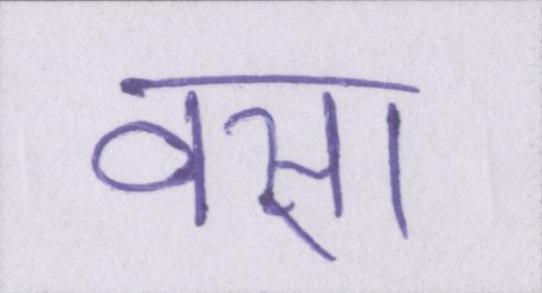 वसा